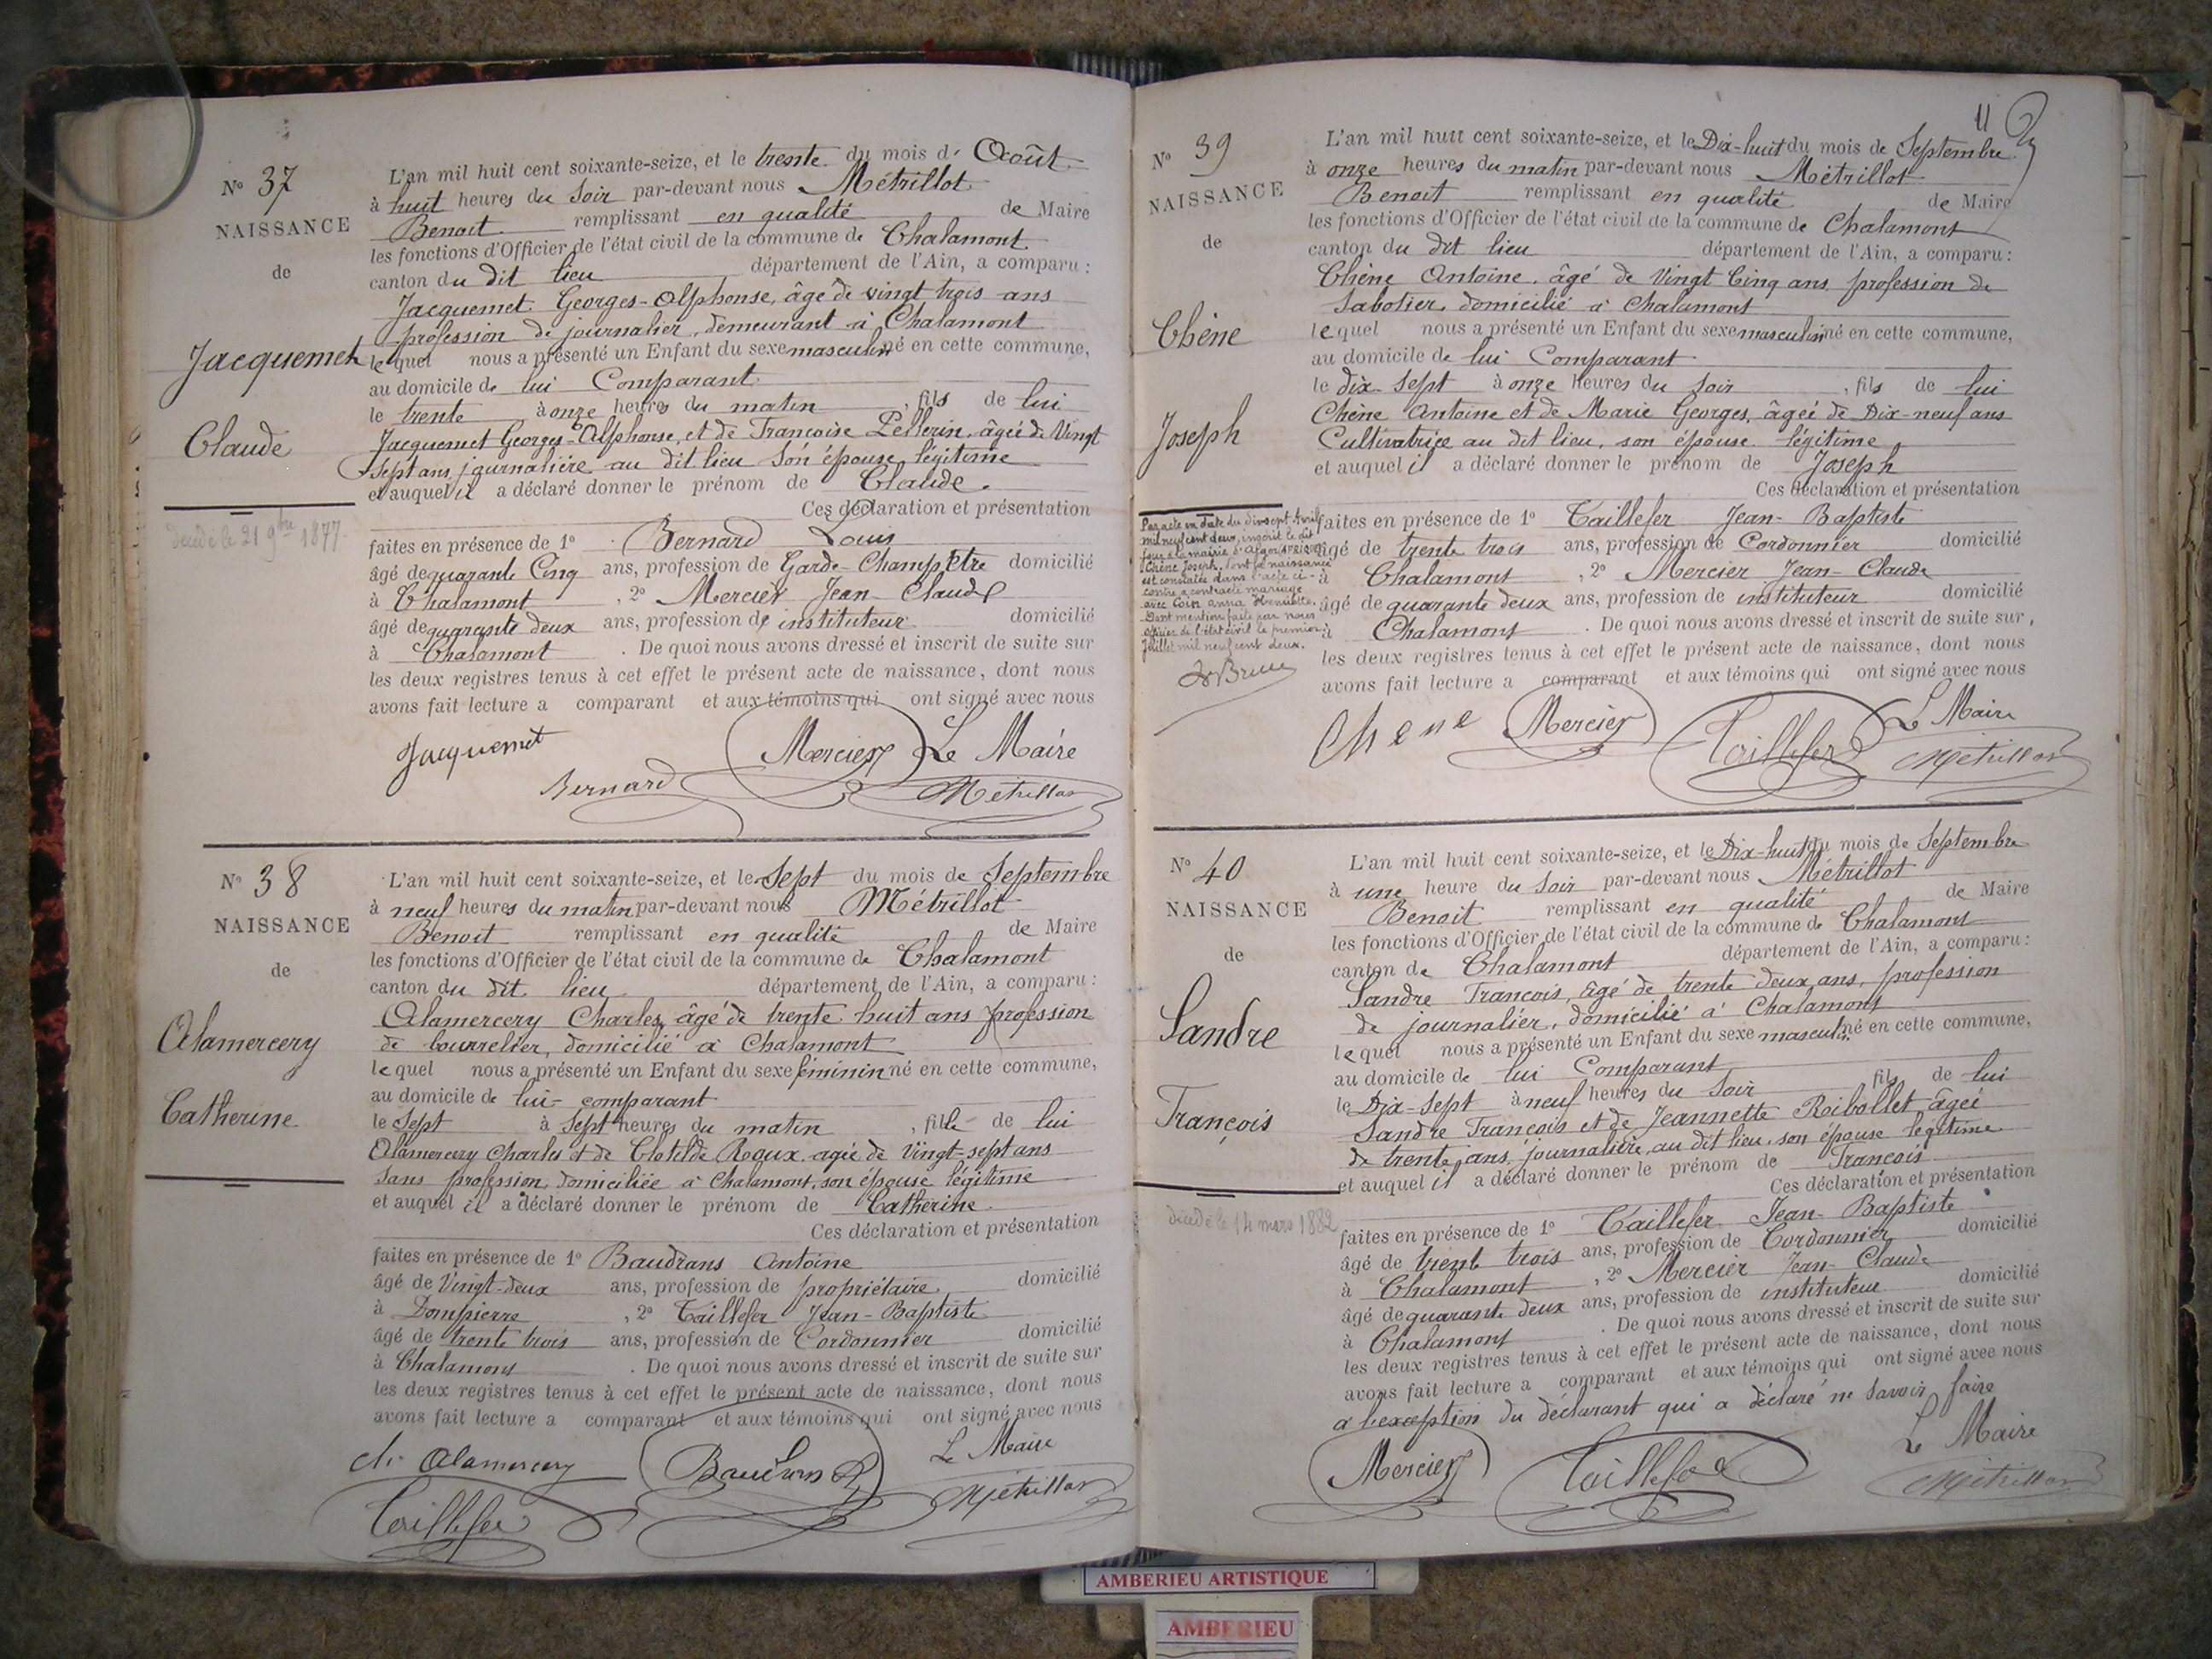 N° 37
NAISSANCE
de
Jacquemet
Claude
décédé le 21 9bre 1877
L'an mil huit cent soixante-seize, et le trente du mois d' Août
à huit heures du soir par-devant nous Métrillot
Benoit remplissant en qualité de Maire
les fonctions d'Officier de l'état civil de la commune de Chalamont
canton du dit lieu département de l'Ain, a comparu :
Jacquemet Georges-Alphonse, âgé de vingt trois ans
profession de journalier, demeurant à Chalamont
lequel nous a présenté un Enfant du sexe masculin né en cette commune,
au domicile de lui Comparant
le trente à onze heures du matin , fils de lui
Jacquemet Georges-Alphonse, et de Françoise Pellerin, âgée de Vingt
Sept ans, journalière au dit lieu son épouse légitime
et auquel il a déclaré donner le prénom de Claude.
Ces déclaration et présentation
faites en présence de 1° Bernard Louis
âgé de quarante Cinq ans, profession de Garde-Champêtre domicilié
à Chalamont , 2° Mercier Jean-Claude
âgé de quarante deux ans, profession de instituteur domicilié
à Chalamont . De quoi nous avons dressé et inscrit de suite sur
les deux registres tenus à cet effet le présent acte de naissance, dont nous
avons fait lecture a comparant et aux témoins qui ont signé avec nous
Jacquemet Mercier Le Maire
Bernard Métrillot
N° 38
NAISSANCE
de
Alamercery
Catherine
L'an mil huit cent soixante-seize, et le Sept du mois de Septembre
à neuf heures du matin par-devant nous Métrillot
Benoit remplissant en qualité de Maire
les fonctions d'Officier de l'état civil de la commune de Chalamont
canton du dit lieu département de l'Ain, a comparu :
Alamercery Charles, âgé de trente huit ans profession
de bourrelier, domicilié à Chalamont
lequel nous a présenté un Enfant du sexe féminin né en cette commune,
au domicile de lui-comparant
le Sept à Sept heures du matin , fille de lui
Alamercery Charles et de Clotilde Roux, agée de Vingt-sept ans
sans profession, domiciliée à Chalamont, son épouse légitime
et auquel il a déclaré donner le prénom de Catherine.
Ces déclaration et présentation
faites en présence de 1° Baudrans Antoine
âgé de Vingt-deux ans, profession de propriétaire domicilié
à Dompierre , 2° Taillefer Jean-Baptiste
âgé de trente trois ans, profession de Cordonnier domicilié
à Chalamont . De quoi nous avons dressé et inscrit de suite sur
les deux registres tenus à cet effet le présent acte de naissance, dont nous
avons fait lecture a comparant et aux témoins qui ont signé avec nous
ch. Alamercery Baudrans Le Maire
Taillefer Métrillot
11
N° 39
NAISSANCE
de
Chêne
Joseph
Par acte en date du dix sept Avril
mil neuf cent deux, inscrit le dit
jour à la mairie d'Alger (AFRIQUE)
Chêne Joseph, dont la naissance
est constatée dans l'acte ci-
contre a contracté mariage
avec Coin Anna Henriette.
Dont mention faite par nous
officier de l'état civil le premier
Juillet mil neuf cent deux.
L'an mil huit cent soixante-seize, et le Dix-huit du mois de Septembre
à onze heures du matin par-devant nous Métrillot
Benoit remplissant en qualité de Maire
les fonctions d'Officier de l'état civil de la commune de Chalamont
canton du dit lieu département de l'Ain, a comparu :
Chêne Antoine, âgé de Vingt Cinq ans, profession de
Sabotier, domicilié à Chalamont
lequel nous a présenté un Enfant du sexe masculin né en cette commune,
au domicile de lui Comparant
le dix-sept à onze heures du soir , fils de lui
Chêne Antoine et de Marie Georges, âgée de Dix-neuf ans
Cultivatrice au dit lieu, son épouse légitime
et auquel il a déclaré donner le prénom de Joseph
Ces déclaration et présentation
faites en présence de 1° Taillefer Jean-Baptiste
âgé de trente trois ans, profession de Cordonnier domicilié
à Chalamont , 2° Mercier Jean-Claude
âgé de quarante deux ans, profession de instituteur domicilié
à Chalamont . De quoi nous avons dressé et inscrit de suite sur,
les deux registres tenus à cet effet le présent acte de naissance, dont nous
avons fait lecture a comparant et aux témoins qui ont signé avec nous
Chene Mercier Le Maire
Taillefer Métrillot
N° 40
NAISSANCE
de
Sandre
François
décédé le 14 mars 1882
L'an mil huit cent soixante-seize, et le Dix-huit du mois de Septembre
à une heure du soir par-devant nous Métrillot
Benoit remplissant en qualité de Maire
les fonctions d'Officier de l'état civil de la commune de Chalamont
canton de Chalamont département de l'Ain, a comparu :
Sandre François, âgé de trente deux ans, profession
de journalier, domicilié à Chalamont
lequel nous a présenté un Enfant du sexe masculin né en cette commune,
au domicile de lui Comparant
le Dix-sept à neuf heures du soir fils de lui
Sandre François et de Jeannette Roibollet âgée
de trente ans, journalière, au dit lieu, son épouse légitime
et auquel il a déclaré donner le prénom de François
Ces déclaration et présentation
faites en présence de 1° Taillefer Jean-Baptiste
âgé de trente trois ans, profession de Cordonnier domicilié
à Chalamont , 2° Mercier Jean-Claude
âgé de quarante deux ans, profession de instituteur domicilié
à Chalamont . De quoi nous avons dressé et inscrit de suite sur
les deux registres tenus à cet effet le présent acte de naissance, dont nous
avons fait lecture a comparant et aux témoins qui ont signé avec nous
a l'exception du déclarant qui a déclaré ne savoir faire
Mercier Taillefer Le Maire
Métrillot
AMBERIEU ARTISTIQUE
AMBERIEU